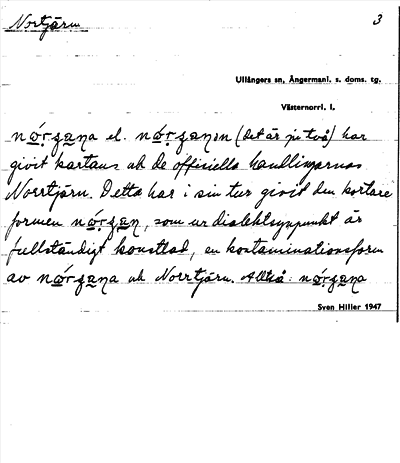 Norrtjärn 3
Ullångers sn, Ångermanl. s. doms. tg.
Västernorrl. l.
nórʒana el. nórʒanen (det är ju två) har
givit kartans och de officiella handlingarnas
Norrtjärn. Detta har i sin tur givit den kortare
formen nórʒan, som ur dialektsynpunkt är
fullständigt konstlad, en kontaminationsform
av nórʒana och Norrtjärn. Alltså: nórʒana
Sven Hiller 1947